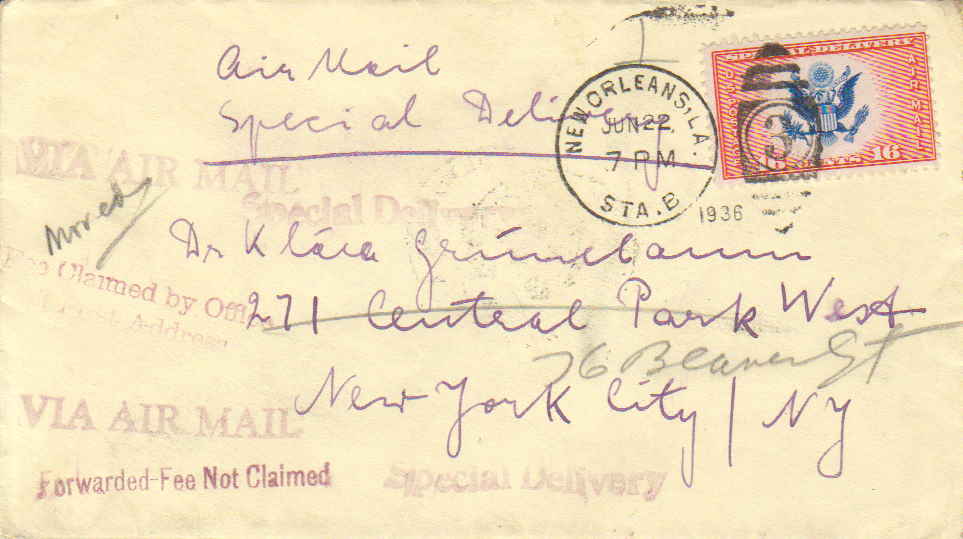 Air Mail
Special Delivery
NEW ORLEANS, LA.
JUN 22,
7 PM
STA. B
1936
SPECIAL DELIVERY
AIR MAIL
16 CENTS 16
3
VIA AIR MAIL
Special Delivery
Dr Klára Grünebaum
Fee Claimed by Office
Address
271 Central Park West
76 Beaver St
New York City / NY
VIA AIR MAIL
Forwarded-Fee Not Claimed
Special Delivery